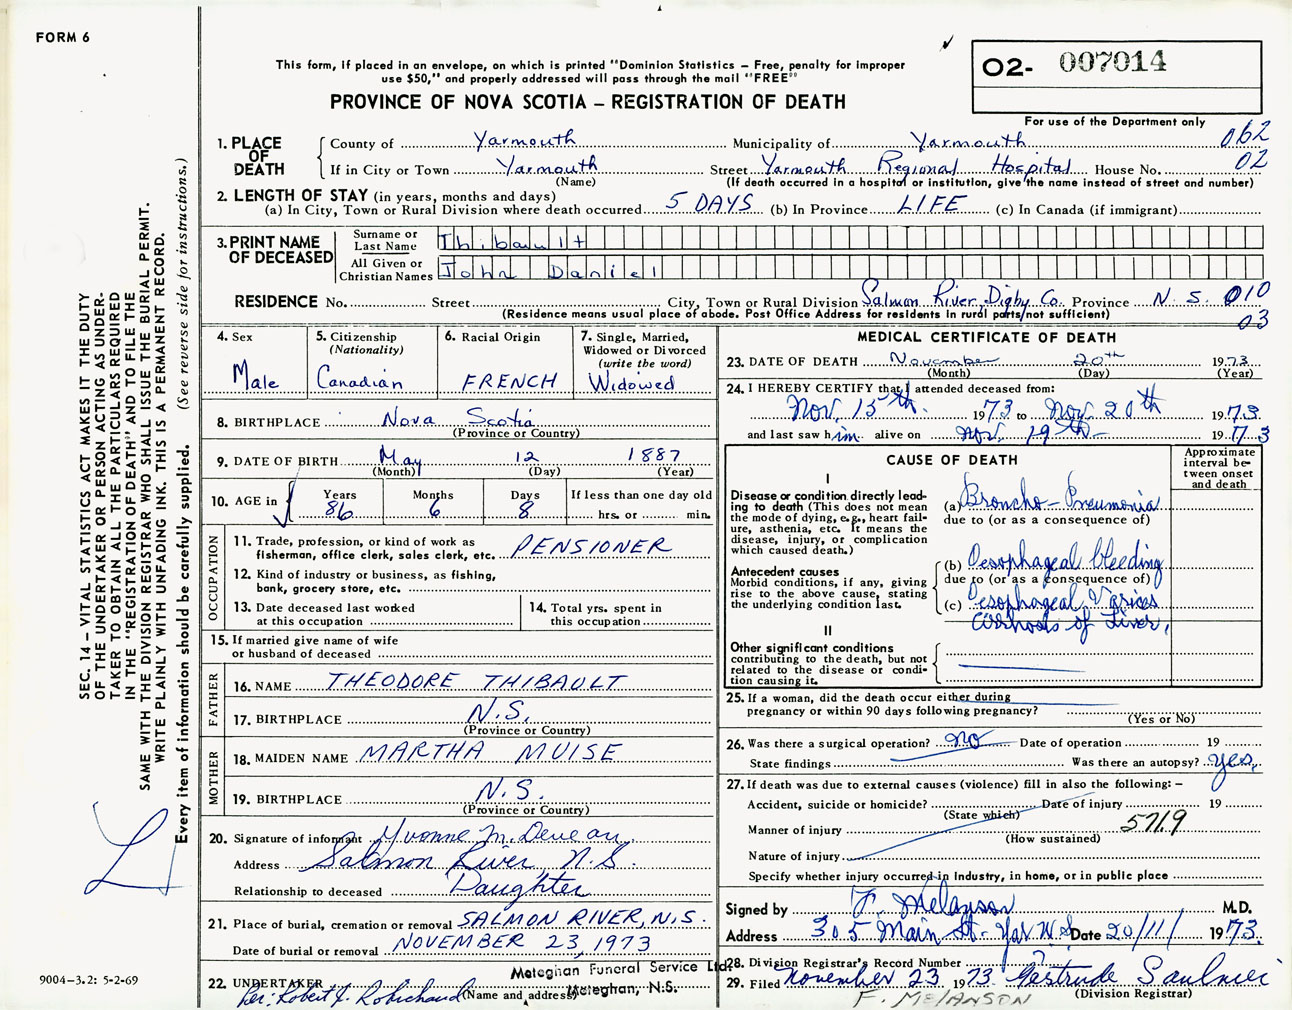 FORM 6
This form, if placed in an envelope, on which is printed "Dominion Statistics – Free, penalty for improper
use $50," and properly addressed will pass through the mail "FREE"
PROVINCE OF NOVA SCOTIA – REGISTRATION OF DEATH
O2- 007014
For use of the Department only
062
02
1. PLACE OF DEATH
County of Yarmouth Municipality of Yarmouth
If in City or Town Yarmouth Street Yarmouth Regional Hospital House No.
(Name) (If death occurred in a hospital or institution, give the name instead of street and number)
2. LENGTH OF STAY (in years, months and days)
(a) In City, Town or Rural Division where death occurred 5 DAYS (b) In Province LIFE (c) In Canada (if immigrant)
3. PRINT NAME OF DECEASED
Surname or Last Name Thibault
All Given or Christian Names John Daniel
RESIDENCE No. Street City, Town or Rural Division Salmon River, Digby Co. Province N.S. 010
(Residence means usual place of abode. Post Office Address for residents in rural parts not sufficient) 03
4. Sex Male
5. Citizenship (Nationality) Canadian
6. Racial Origin FRENCH
7. Single, Married, Widowed or Divorced (write the word) Widowed
8. BIRTHPLACE Nova Scotia
(Province or Country)
9. DATE OF BIRTH May 12 1887
(Month) (Day) (Year)
10. AGE in Years 86 Months 6 Days 8 If less than one day old hrs. or min.
OCCUPATION
11. Trade, profession, or kind of work as
fisherman, office clerk, sales clerk, etc. PENSIONER
12. Kind of industry or business, as fishing,
bank, grocery store, etc.
13. Date deceased last worked
at this occupation
14. Total yrs. spent in
this occupation
15. If married give name of wife
or husband of deceased
FATHER
16. NAME THEODORE THIBAULT
17. BIRTHPLACE N.S.
(Province or Country)
MOTHER
18. MAIDEN NAME MARTHA MUISE
19. BIRTHPLACE N.S.
(Province or Country)
20. Signature of informant Yvonne M. Deveau
Address Salmon River, N.S.
Relationship to deceased Daughter
21. Place of burial, cremation or removal SALMON RIVER, N.S.
Date of burial or removal NOVEMBER 23, 1973
22. UNDERTAKER Meteghan Funeral Service Ltd.
Per: Robert J. Robichaud (Name and address) Meteghan, N.S.
MEDICAL CERTIFICATE OF DEATH
23. DATE OF DEATH November 20th 1973
(Month) (Day) (Year)
24. I HEREBY CERTIFY that I attended deceased from:
Nov. 15th 1973 to Nov. 20th 1973
and last saw him alive on Nov. 19th 1973
CAUSE OF DEATH
Approximate interval between onset and death
I
Disease or condition directly lead-
ing to death (This does not mean
the mode of dying, e.g., heart fail-
ure, asthenia, etc. It means the
disease, injury, or complication
which caused death.)
(a) Broncho-Pneumonia
due to (or as a consequence of)
Antecedent causes
Morbid conditions, if any, giving
rise to the above cause, stating
the underlying condition last.
(b) Oesophageal bleeding
due to (or as a consequence of)
(c) Oesophageal Varices
Cirrhosis of Liver,
II
Other significant conditions
contributing to the death, but not
related to the disease or condi-
tion causing it.
25. If a woman, did the death occur either during
pregnancy or within 90 days following pregnancy?
(Yes or No)
26. Was there a surgical operation? no Date of operation 19
State findings Was there an autopsy? yes,
27. If death was due to external causes (violence) fill in also the following: –
Accident, suicide or homicide? Date of injury 19
(State which)
Manner of injury 571.9
(How sustained)
Nature of injury
Specify whether injury occurred in industry, in home, or in public place
Signed by F. Melanson M.D.
Address 305 Main St. Yar. N.S. Date 20/11/ 1973.
28. Division Registrar's Record Number
29. Filed November 23 1973 Gertrude Saulnier
(Division Registrar)
F. MELANSON
SEC. 14 – VITAL STATISTICS ACT MAKES IT THE DUTY
OF THE UNDERTAKER OR PERSON ACTING AS UNDER-
TAKER TO OBTAIN ALL THE PARTICULARS REQUIRED
IN THE "REGISTRATION OF DEATH" AND TO FILE THE
SAME WITH THE DIVISION REGISTRAR WHO SHALL ISSUE THE BURIAL PERMIT.
WRITE PLAINLY WITH UNFADING INK. THIS IS A PERMANENT RECORD.
Every item of information should be carefully supplied. (See reverse side for instructions.)
9004–3.2: 5-2-69